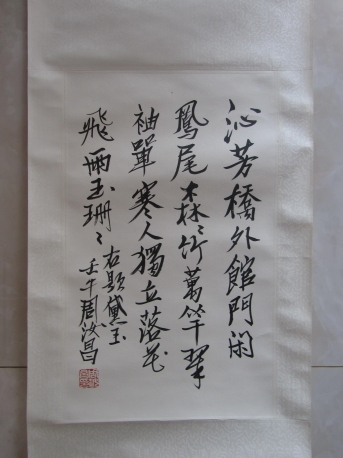 沁芳橋外館門閑
鳳尾森〻竹萬竿翠
袖單寒人獨立落花
飛雨玉珊〻
右題黛玉
壬午周汝昌